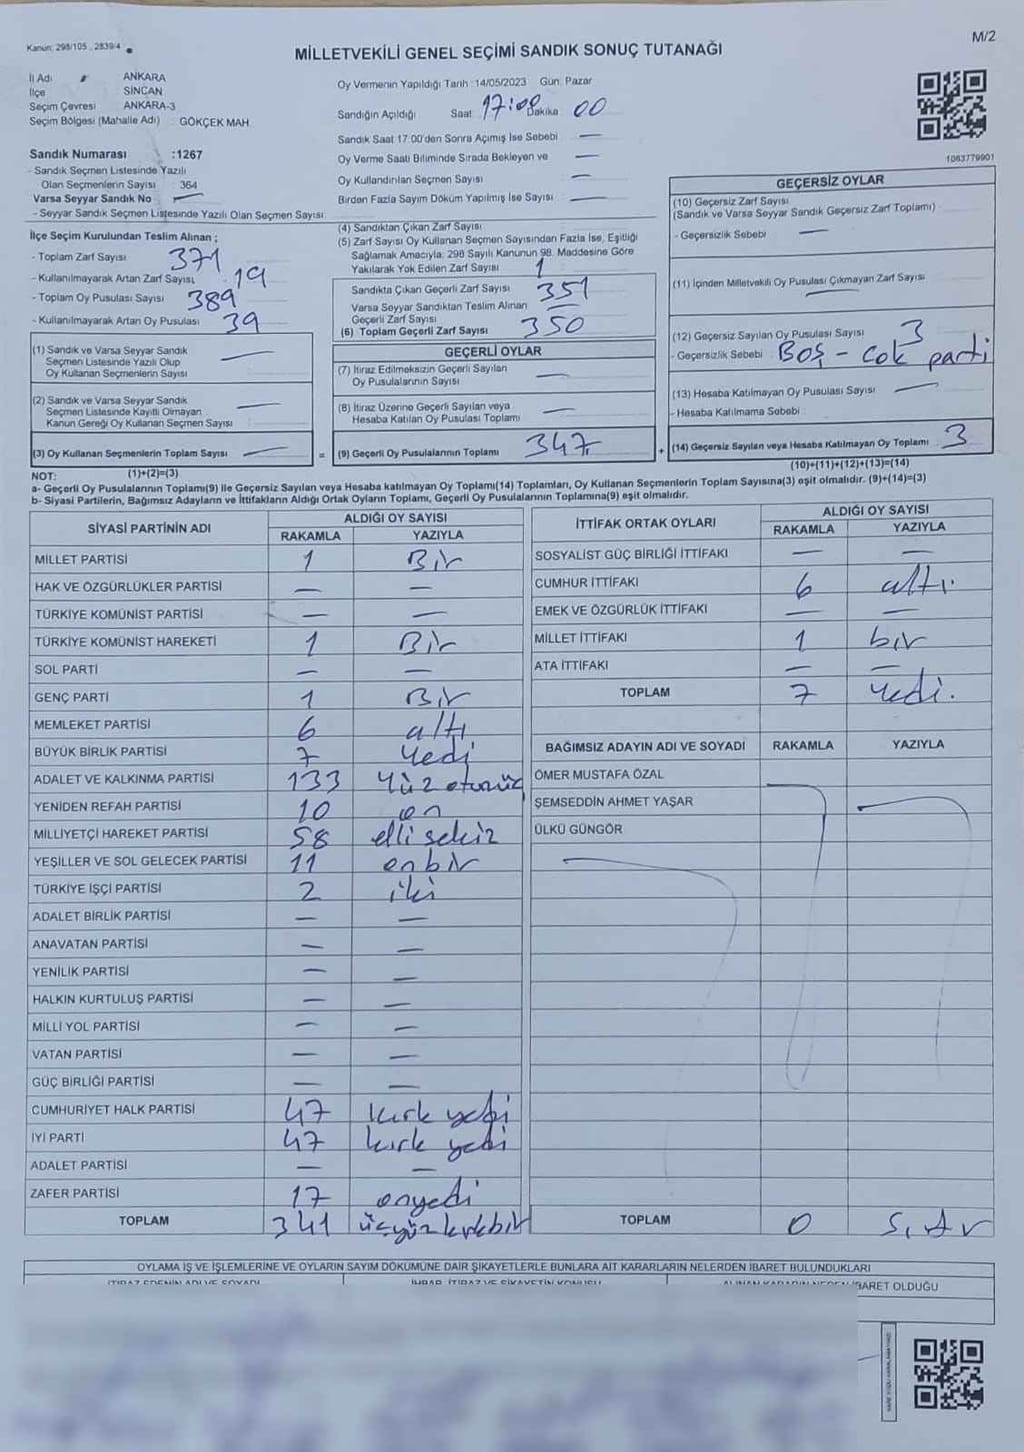 Kanun: 298/105 , 2839/4
MİLLETVEKİLİ GENEL SEÇİMİ SANDIK SONUÇ TUTANAĞI
M/2
İl Adı ANKARA
İlçe SİNCAN
Seçim Çevresi ANKARA-3
Seçim Bölgesi (Mahalle Adı) : GÖKÇEK MAH
Sandık Numarası :1267
- Sandık Seçmen Listesinde Yazılı
Olan Seçmenlerin Sayısı : 364
Varsa Seyyar Sandık No —
- Seyyar Sandık Seçmen Listesinde Yazılı Olan Seçmen Sayısı:
İlçe Seçim Kurulundan Teslim Alınan ;
- Toplam Zarf Sayısı 371
- Kullanılmayarak Artan Zarf Sayısı 19
- Toplam Oy Pusulası Sayısı 389
- Kullanılmayarak Artan Oy Pusulası 39
(1) Sandık ve Varsa Seyyar Sandık —
Seçmen Listesinde Yazılı Olup
Oy Kullanan Seçmenlerin Sayısı
(2) Sandık ve Varsa Seyyar Sandık —
Seçmen Listesinde Kayıtlı Olmayan
Kanun Gereği Oy Kullanan Seçmen Sayısı
(3) Oy Kullanan Seçmenlerin Toplam Sayısı —
=
Oy Vermenin Yapıldığı Tarih :14/05/2023 Gün: Pazar
Sandığın Açıldığı Saat 17:00 Dakika 00
Sandık Saat 17:00'den Sonra Açılmış İse Sebebi —
Oy Verme Saati Bitiminde Sırada Bekleyen ve —
Oy Kullandırılan Seçmen Sayısı —
Birden Fazla Sayım Döküm Yapılmış İse Sayısı —
(4) Sandıktan Çıkan Zarf Sayısı
(5) Zarf Sayısı Oy Kullanan Seçmen Sayısından Fazla İse, Eşitliği
Sağlamak Amacıyla; 298 Sayılı Kanunun 98. Maddesine Göre
Yakılarak Yok Edilen Zarf Sayısı 1
Sandıkta Çıkan Geçerli Zarf Sayısı 351
Varsa Seyyar Sandıktan Teslim Alınan —
Geçerli Zarf Sayısı
(6) Toplam Geçerli Zarf Sayısı 350
GEÇERLİ OYLAR
(7) İtiraz Edilmeksizin Geçerli Sayılan —
Oy Pusulalarının Sayısı
(8) İtiraz Üzerine Geçerli Sayılan veya —
Hesaba Katılan Oy Pusulası Toplamı
(9) Geçerli Oy Pusulalarının Toplamı 347
+
1083779901
GEÇERSİZ OYLAR
(10) Geçersiz Zarf Sayısı
(Sandık ve Varsa Seyyar Sandık Geçersiz Zarf Toplamı)
- Geçersizlik Sebebi —
(11) İçinden Milletvekili Oy Pusulası Çıkmayan Zarf Sayısı
—
(12) Geçersiz Sayılan Oy Pusulası Sayısı 3
- Geçersizlik Sebebi Boş - çok parti
(13) Hesaba Katılmayan Oy Pusulası Sayısı —
- Hesaba Katılmama Sebebi
(14) Geçersiz Sayılan veya Hesaba Katılmayan Oy Toplamı 3
NOT: (1)+(2)=(3) (10)+(11)+(12)+(13)=(14)
a- Geçerli Oy Pusulalarının Toplamı(9) ile Geçersiz Sayılan veya Hesaba katılmayan Oy Toplamı(14) Toplamları, Oy Kullanan Seçmenlerin Toplam Sayısına(3) eşit olmalıdır. (9)+(14)=(3)
b- Siyasi Partilerin, Bağımsız Adayların ve İttifakların Aldığı Ortak Oyların Toplamı, Geçerli Oy Pusulalarının Toplamına(9) eşit olmalıdır.
SİYASİ PARTİNİN ADI ALDIĞI OY SAYISI
RAKAMLA YAZIYLA
MİLLET PARTİSİ 1 Bir
HAK VE ÖZGÜRLÜKLER PARTİSİ — —
TÜRKİYE KOMÜNİST PARTİSİ — —
TÜRKİYE KOMÜNİST HAREKETİ 1 Bir
SOL PARTİ — —
GENÇ PARTİ 1 Bir
MEMLEKET PARTİSİ 6 altı
BÜYÜK BİRLİK PARTİSİ 7 Yedi
ADALET VE KALKINMA PARTİSİ 133 Yüz otuzüç
YENİDEN REFAH PARTİSİ 10 on
MİLLİYETÇİ HAREKET PARTİSİ 58 elli sekiz
YEŞİLLER VE SOL GELECEK PARTİSİ 11 onbir
TÜRKİYE İŞÇİ PARTİSİ 2 iki
ADALET BİRLİK PARTİSİ — —
ANAVATAN PARTİSİ — —
YENİLİK PARTİSİ — —
HALKIN KURTULUŞ PARTİSİ — —
MİLLİ YOL PARTİSİ — —
VATAN PARTİSİ — —
GÜÇ BİRLİĞİ PARTİSİ — —
CUMHURİYET HALK PARTİSİ 47 kırk yedi
İYİ PARTİ 47 kırk yedi
ADALET PARTİSİ — —
ZAFER PARTİSİ 17 onyedi
TOPLAM 341 üçyüz kırkbir
İTTİFAK ORTAK OYLARI ALDIĞI OY SAYISI
RAKAMLA YAZIYLA
SOSYALİST GÜÇ BİRLİĞİ İTTİFAKI — —
CUMHUR İTTİFAKI 6 altı
EMEK VE ÖZGÜRLÜK İTTİFAKI — —
MİLLET İTTİFAKI 1 bir
ATA İTTİFAKI — —
TOPLAM 7 Yedi.
BAĞIMSIZ ADAYIN ADI VE SOYADI RAKAMLA YAZIYLA
ÖMER MUSTAFA ÖZAL
ŞEMSEDDİN AHMET YAŞAR
ÜLKÜ GÜNGÖR
TOPLAM 0 Sıfır
OYLAMA İŞ VE İŞLEMLERİNE VE OYLARIN SAYIM DÖKÜMÜNE DAİR ŞİKAYETLERLE BUNLARA AİT KARARLARIN NELERDEN İBARET BULUNDUKLARI
İTİRAZ EDENİN ADI VE SOYADI İHBAR, İTİRAZ VE ŞİKAYETİN KONUSU ALINAN KARARIN NEDEN İBARET OLDUĞU